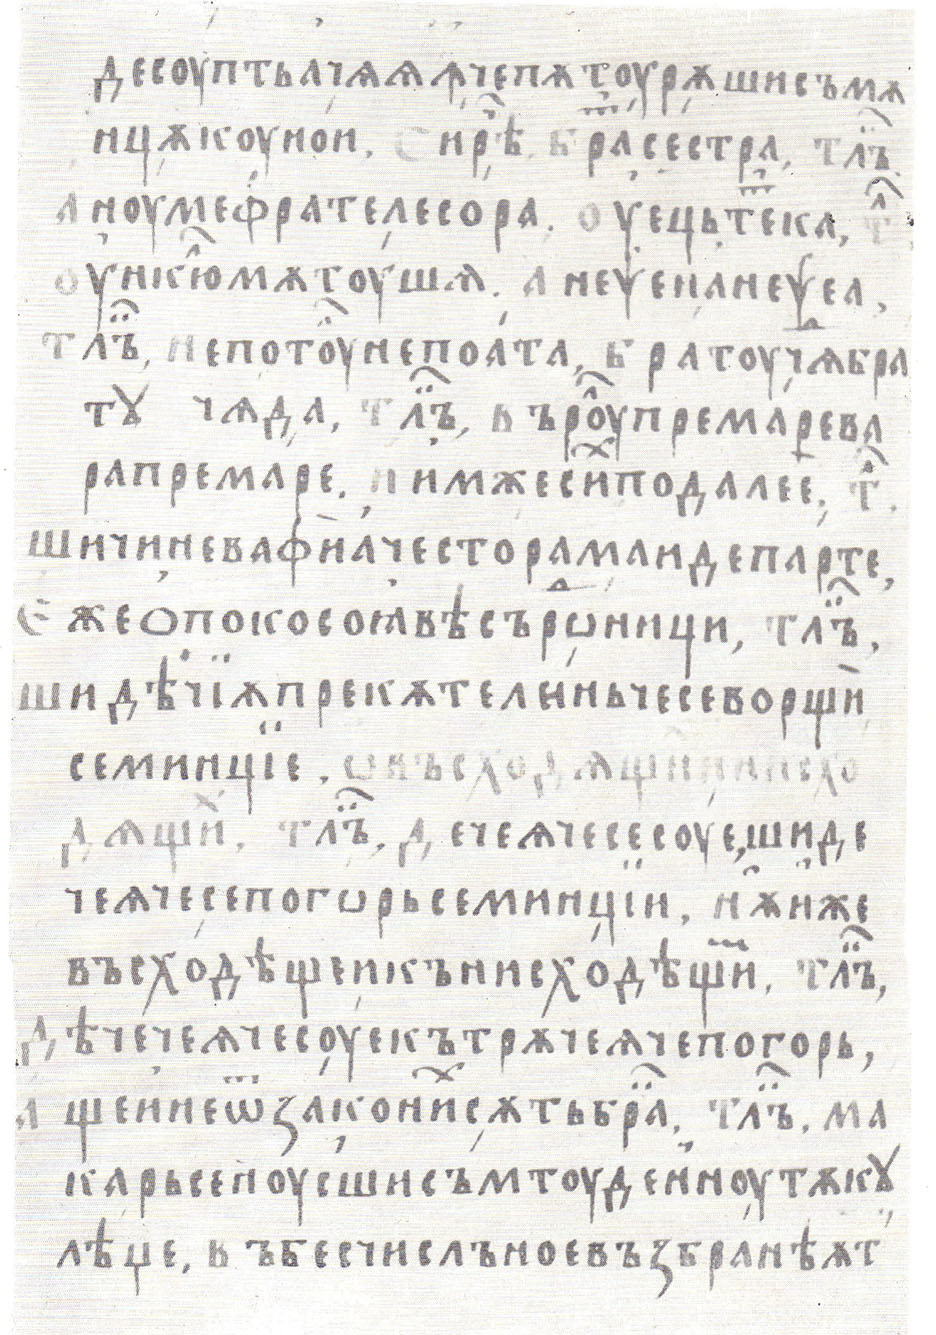 десоуптьачѧѧꙟчепѫтоурѫшисъмѫ
нцѫкоунои. Сирѣ. братсестра, тлъ.
аноумефрателесора. оуецьтека, т
оункюмѫтоуша. анеѱеианеѱеа,
тлъ, непотоунепоата, братоучѫбра
тꙋ чѧда, тлъ, въроупремарева
рапремаре. нимжесиподалее. т.
шичиневафиачесторамаидепарте,
Ежеѻпокосоꙗвѣсърѡници, тлъ.
шидѣчіѫпрекѫтелениьчесеворщи
семинціе. ѡвъсходѧщиинисхо
дѧщи. тлъ. дечеѧчесесоуе,шиде
чеѧчесепогѡрьсеминціи. нѫиже
въсходѣщеикънисходѣщи, тлъ,
дѣчечеѧчесоуекътрѫчеѧчепогорь,
ащеинеѿзаконисѫтьбра. тлъ. ма
карьсеноусшисъмтоуденноутѫкꙋ
лѣџе. въбесчислъноевъзбранѣѫт